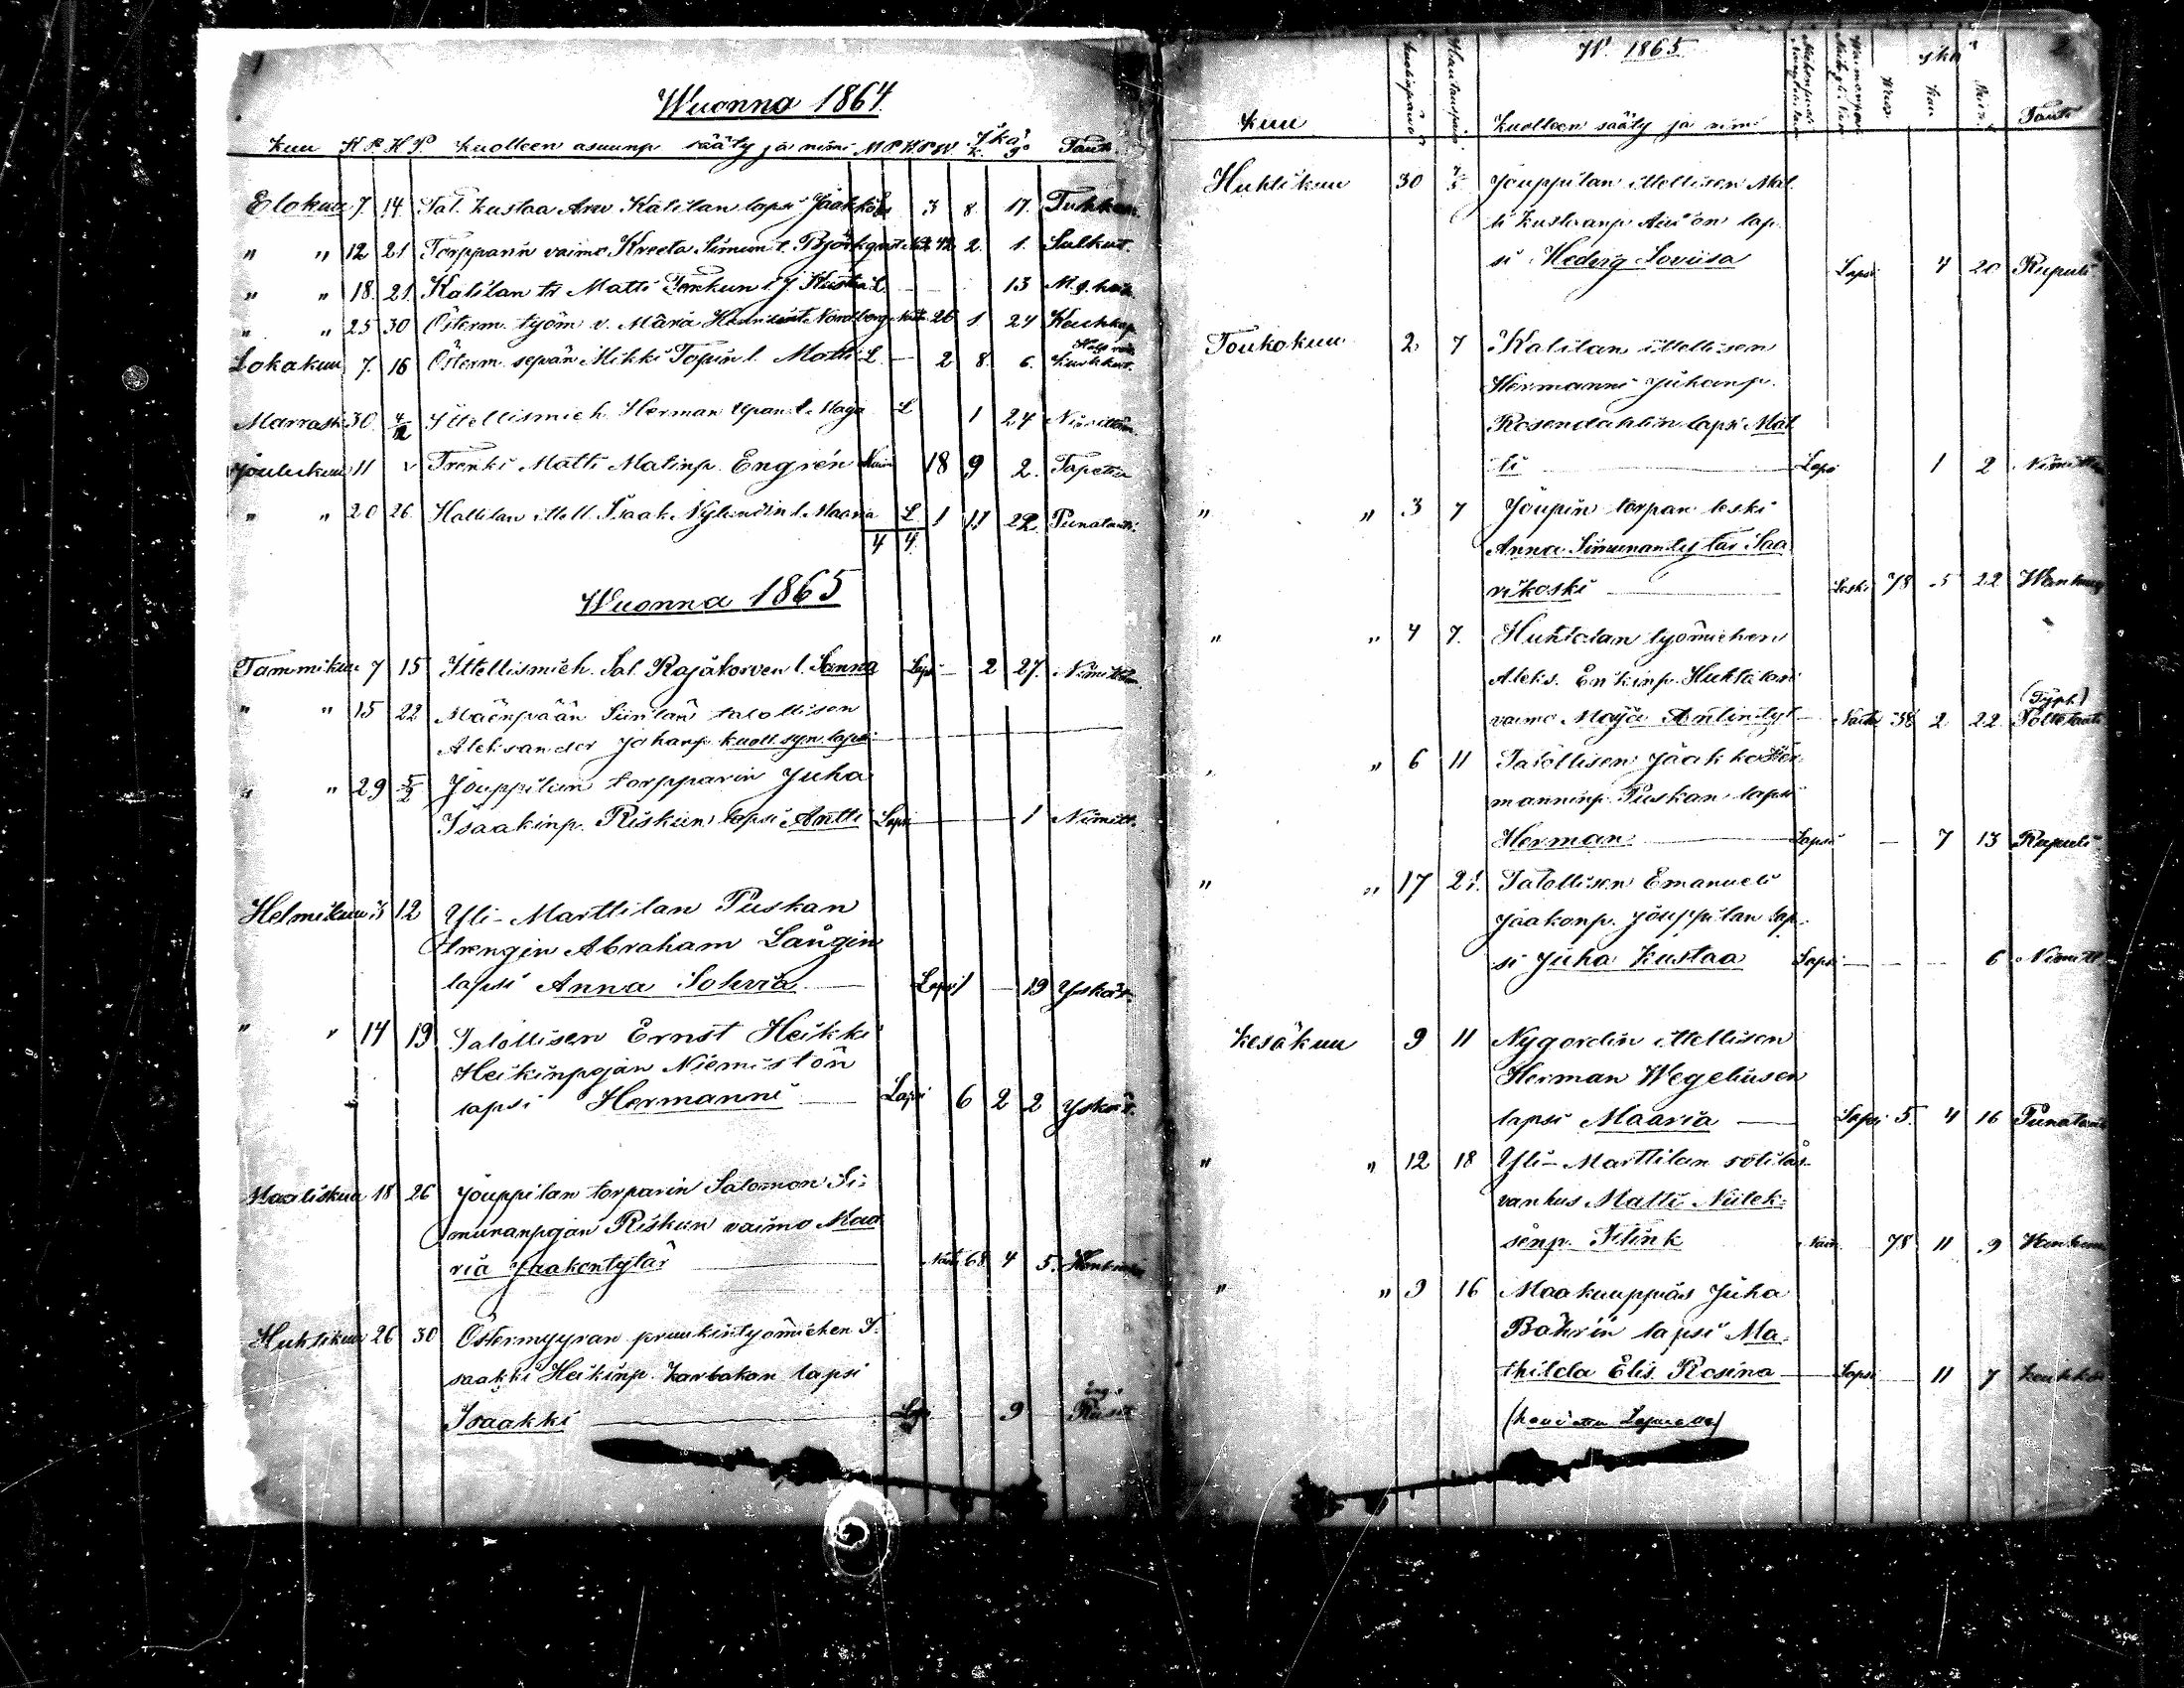 Wuonna 1864
Kuu K P. H P. Kuolleen asuunp sääty ja nimi M P. W. P W. Ikä k. p Tauti
Elokuu 7. 14 Tal. Kustaa Kalilan lapsi Jaakko L. 3 8. 17. Tuhkur.
" " 12 21 Torpparin vaimo Kreeta Simun t. Björkqvist 42 2. 1. Sulkut.
" " 18. 21. Kalilan Matti l. J. Kustaa L. 13
" " 25 30 Österm. työm v. Maria Nordborg 26 1 24 Keuhkop
Lokakuu 7. 16 Österm. sepän Mikki Topin l. Matti L. — 2 8. 6.
Marrask. 30 4/12 Ittellismieh. Herman l. Maja L 1 24 Nimittäm.
Joulukuu 11 Trenki Matti Matinp. Engrén Nain 18 9 2. Tapett.
" " 20 26. Hallilan ittell. Isaak Nylundin l. Maaria L. 1 11 22. Punataut.
4 4.
Wuonna 1865
Tammikuu 7 15 Ittellismieh. Sal. Rajakorven l. Sanna Lapsi — 2 27. Nimittäm.
" " 15 22 Mäenpään talollisen
Aleksander Johanp. kuoll. syn. lapsi
" " 29 5/2 Jouppilan torpparin Juha
Isaakinp. Riskun lapsi Antti Lapsi 1 Nimitt.
Helmikuu 12 Yli-Marttilan Puskan
trengin Abraham Långin
lapsi Anna Sohvia — Lapsi 1 — 19 Yskät.
" " 14 19 Talollisen Ernst Heikki
Heikinpojan Niemistön
lapsi Hermanni — Lapsi 6 2 2 Yskät.
Maaliskuu 18 26 Jouppilan torparin Salomon Si-
munanpojan Riskun vaimo Maa
ria Jaakontytär Nait. 68 4 5.
Huhtikuu 26 30 Östermyyran pruukintyömiehen I.
saakki Heikinp. Karbakan lapsi
Isaakki Lapsi 9
W. 1865 2
kuu Kuolinpäivä Hautauspäi. Kuolleen sääty ja nimi Ikä Wuos. Kuu Päiv. Tauti
Huhtikuu 30 7/5 Jouppilan ittellisen Mat
ti Kustaanp. lap
si Hedvig Loviisa Lapsi 4 20 Rupuli
Toukokuu 2 7 Kalilan ittellisen
Hermanni Juhanp.
Rosendahlin lapsi Mat
ti Lapsi 1 2 Nimitt.
" " 3 7 Joupin torpan leski
Anna Simunantytär Saa
rikoski Leski 78 5 22 Wanhuus
" " 4 7. Huhtalan työmiehen
Aleks. Erikinp. Huhtalan
vaimo Maja Antintyt — Naitu 38 2 22 (Typh.) Polttotauti
" " 6 11 Talollisen Jaakko Her
manninp. Puskan lapsi
Herman Lapsi — 7 13 Rupuli
" " 17 21. Talollisen Emanueli
Jaakonp. Jouppilan lap-
si Juha Kustaa Lapsi — — 6 Nimitt.
Kesäkuu 9 11 Nygordin ittellisen
Herman Wegeliusen
lapsi Maaria — Lapsi 5. 4 16 Punataut
" " 12 18 Yli-Marttilan sotilas
vanhus Matti Niilek-
senp. Flink Nain. 78 11 9
" " 9 16 Maakauppias Juha
Bährin lapsi Ma-
thilda Elis. Rosina — Lapsi 11 7
(haudattu Lapualla)